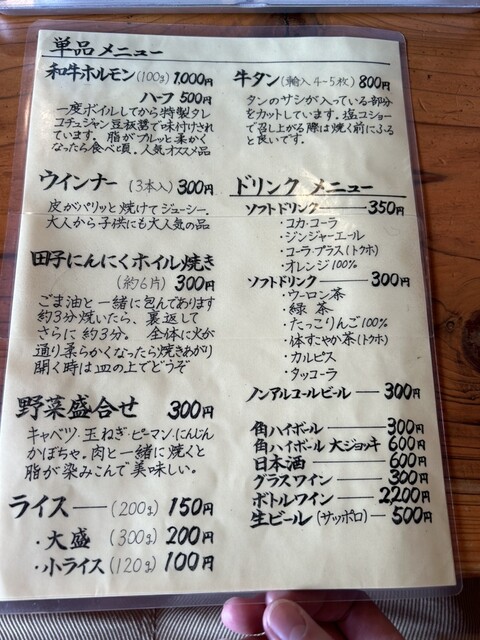 単品メニュー
和牛ホルモン(100g) 1,000円
ハーフ 500円
一度ボイルしてから特製タレ
コチュジャン豆板醤で味付けされ
ています。脂がプルッと柔かく
なったら食べど頃。人気オススメ品
ウインナー (3本入) 300円
皮がパリッと焼けてジューシー.
大人から子供にも大人気の品
田子にんにくホイル焼き
(約6片) 300円
ごま油と一緒に包んであります
約3分焼いたら、裏返して
さらに約3分。全体に火が
通り柔らかくなったら焼きあがり
開く時は皿の上でどうぞ
野菜盛合せ 300円
キャベツ・玉ねぎ・ピーマン・にんじん
かぼちゃ。肉と一緒に焼くと
脂が染みこんで美味しい。
ライス――(200g) 150円
・大盛 (300g) 200円
・小ライス(120g) 100円
牛タン(輸入4-5枚) 800円
タンのサシが入っている部分
をカットしています。塩コショー
で召し上がる際は焼く前にふる
と良いです。
ドリンク メニュー
ソフトドリンク―― 350円
・コカ・コーラ
・ジンジャーエール
・コーラ・プラス(トクホ)
・オレンジ100%
ソフトドリンク―― 300円
・ウーロン茶
・緑茶
・たっこりんご100%
・体すこやか茶(トクホ)
・カルピス
・タッコーラ
ノンアルコールビール ― 300円
角ハイボール―― 300円
角ハイボール 大ジョッキ 600円
日本酒―― 600円
グラスワイン―― 300円
ボトルワイン―― 2,200円
生ビール(サッポロ)― 500円